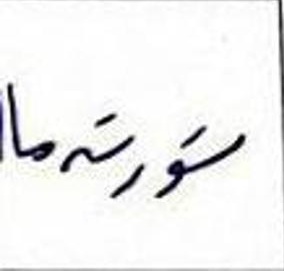 ستورته ما